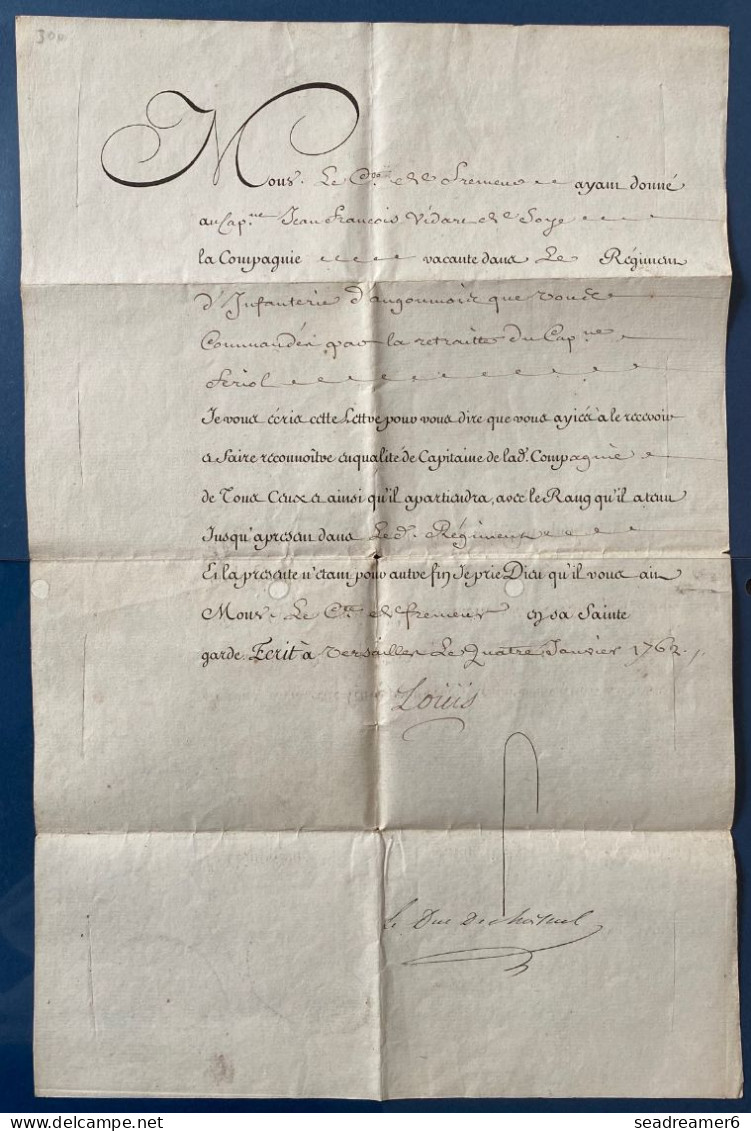 300
Mons. Le Cte de Fremeur ayant donné
au Cap.ne Jean François Vidart de Soye
la Compagnie vacante dans Le Régiment
d'Infanterie d'angoumois que vous
Commandés par la retraitte du Cap.ne
Feriol
Je vous écris cette Lettre pour vous dire que vous ayiés à le recevoir
et faire reconnoître en qualité de Capitaine de lad. Compagnie
de Tous Ceux et ainsi qu'il apartiendra, avec le Rang qu'il a tenu
Jusqu'apresent dans Led. Régiment
Et la presente n'etant pour autre fin Je prie Dieu qu'il vous ait
Mons. Le Cte de fremeur en sa Sainte
garde. Ecrit à Versailles Le Quatre Janvier 1762.
Loüis
le Duc De choiseul
seadreamer6